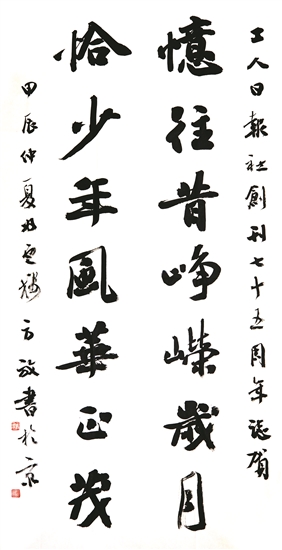 工人日報社創刊七十五周年誌賀
憶往昔崢嶸歲月
恰少年風華正茂
甲辰仲夏 方放書於京